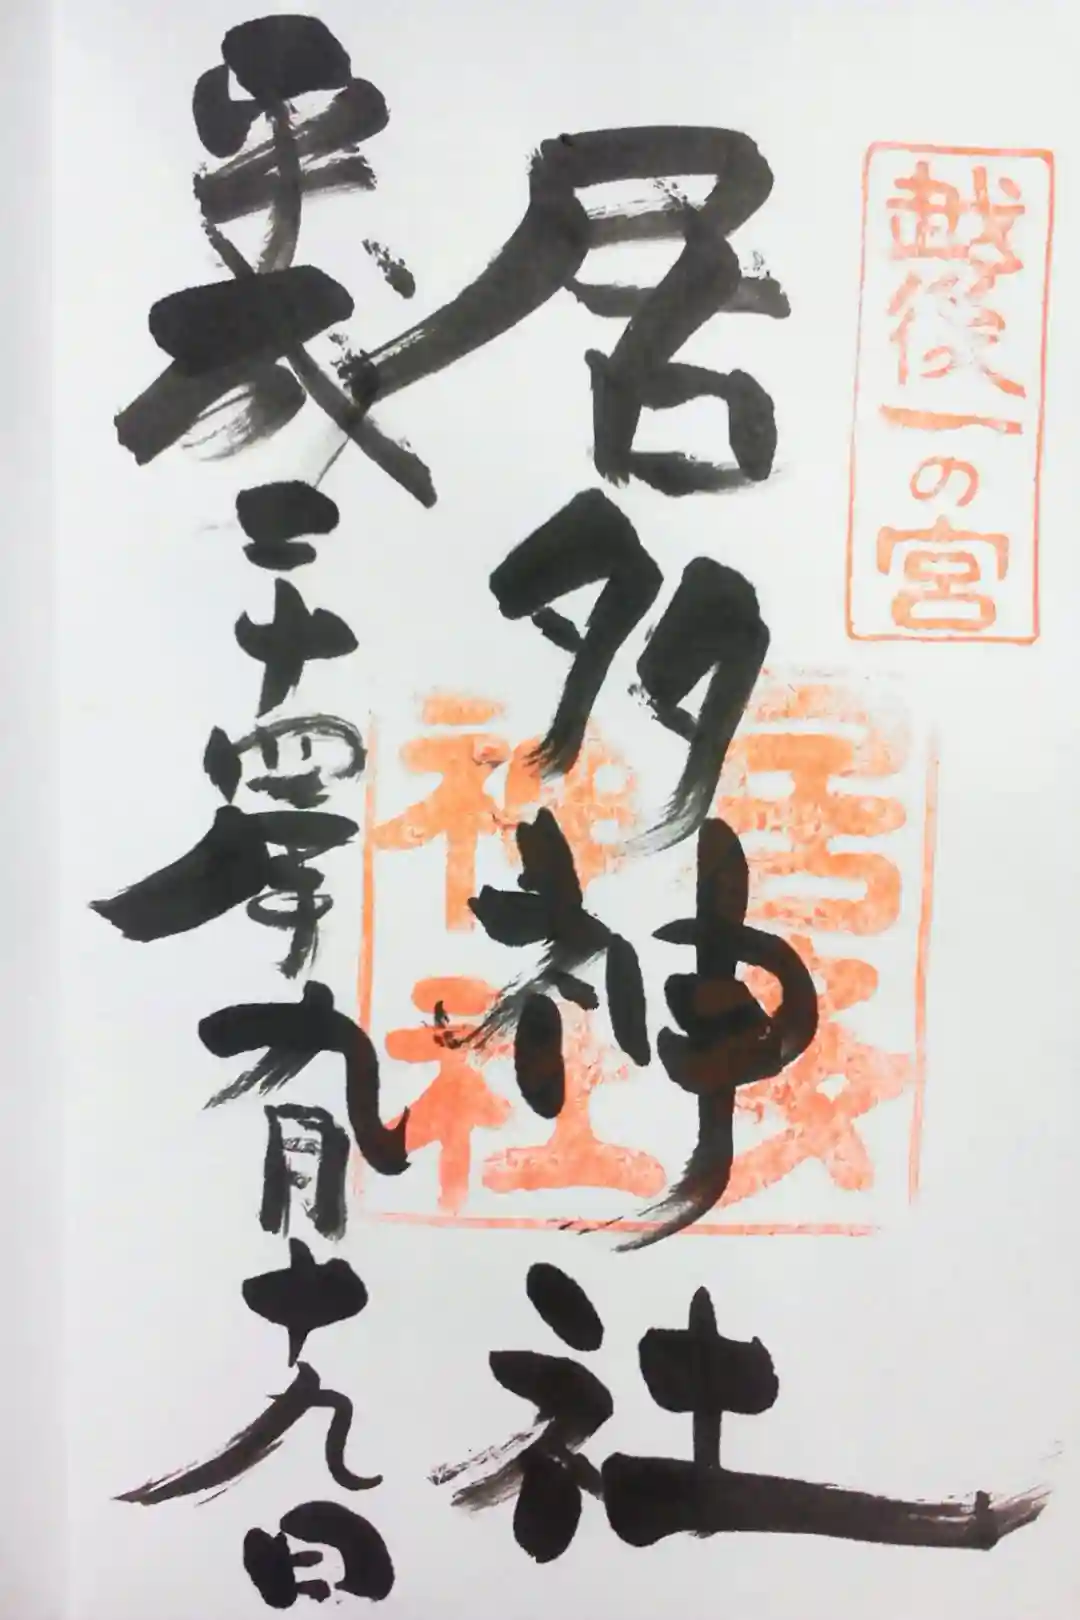 越後一の宮
居多神社
居多
神社
平成二十四年九月十九日